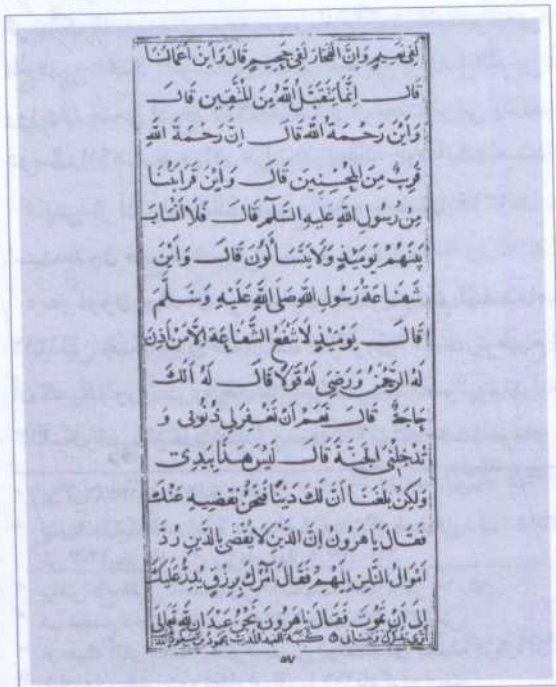 لفي نعيم وان الفجار لفي جحيم قال واين اعمالنا
قال انما يتقبل الله من المتقين قال
واين رحمة الله قال ان رحمة الله
قريب من المحسنين قال واين قرابتنا
من رسول الله عليه السلم قال فلا انساب
بينهم يوميذ ولا يتسالون قال واين
شفاعة رسول الله صلى الله عليه وسلم
قال يوميذ لا تنفع الشفاعة الا من اذن
له الرحمن ورضي له قولا قال له الك
حاجة قال نعم ان تغفر لي ذنوبي و
تدخلني الجنة قال ليس هذا بيدي
ولكن بلغنا ان لك دينا فنحن نقضيه عنك
فقال يا هرون ان الدين لا يقضى بالدين رد
اموال الناس اليهم فقال آمر لك برزق يرد عليك
الى ان تموت فقال يا هرون نحن عبدان لله فتعالى
كتبه العبد المذنب محمود بن
٥٧